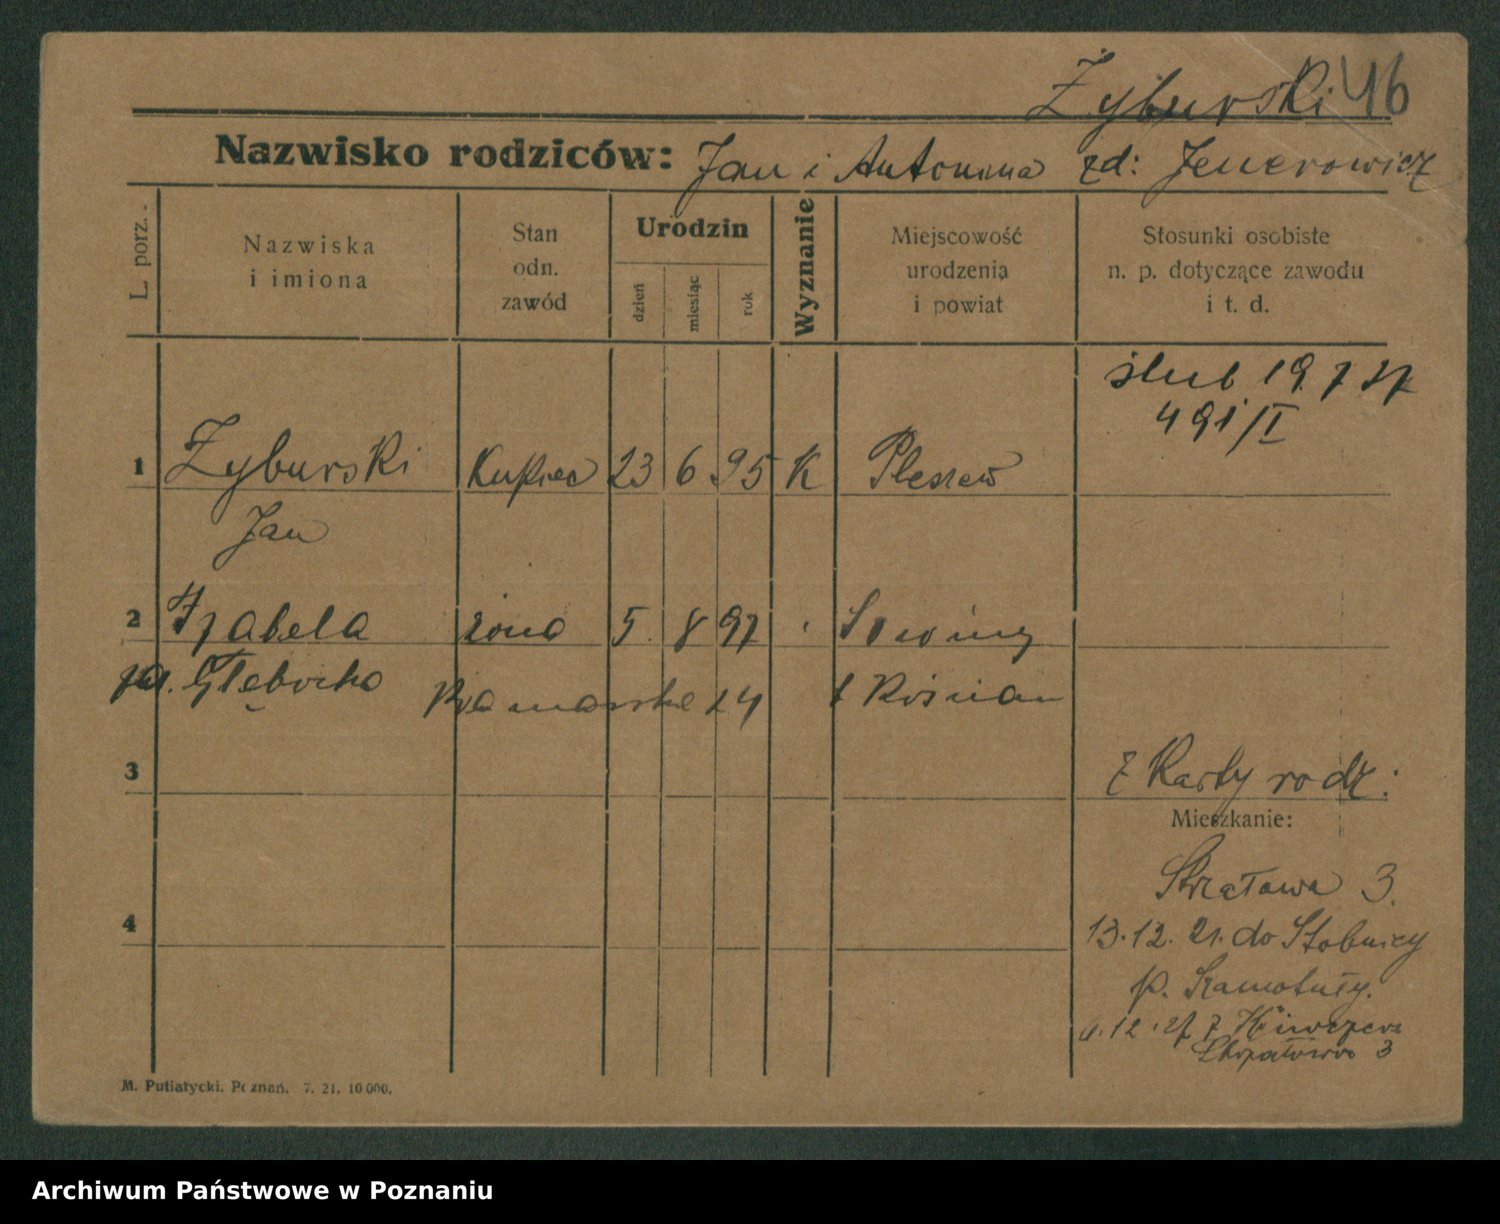 Żyburski 46
Nazwisko rodziców: Jan i Antonina zd: Jenerowicz
L. porz.
Nazwiska
i imiona
Stan
odn.
zawód
Urodzin
dzień
miesiąc
rok
Wyznanie
Miejscowość
urodzenia
i powiat
Stosunki osobiste
n. p. dotyczące zawodu
i t. d.
ślub 19 7 27
491/I
1 Zyburski Kupiec 23 6 95 K Pleszew
Jan
2 Izabela żona 5. 8 97
Głębocka 24
3
z Karty rodz:
Mieszkanie:
Strzałowa 3.
4
13.12. 21. do Stobnicy
p. Szamotuły.
Strzałowa 3
M. Putiatycki. Poznań. 7. 21. 10 000.
Archiwum Państwowe w Poznaniu